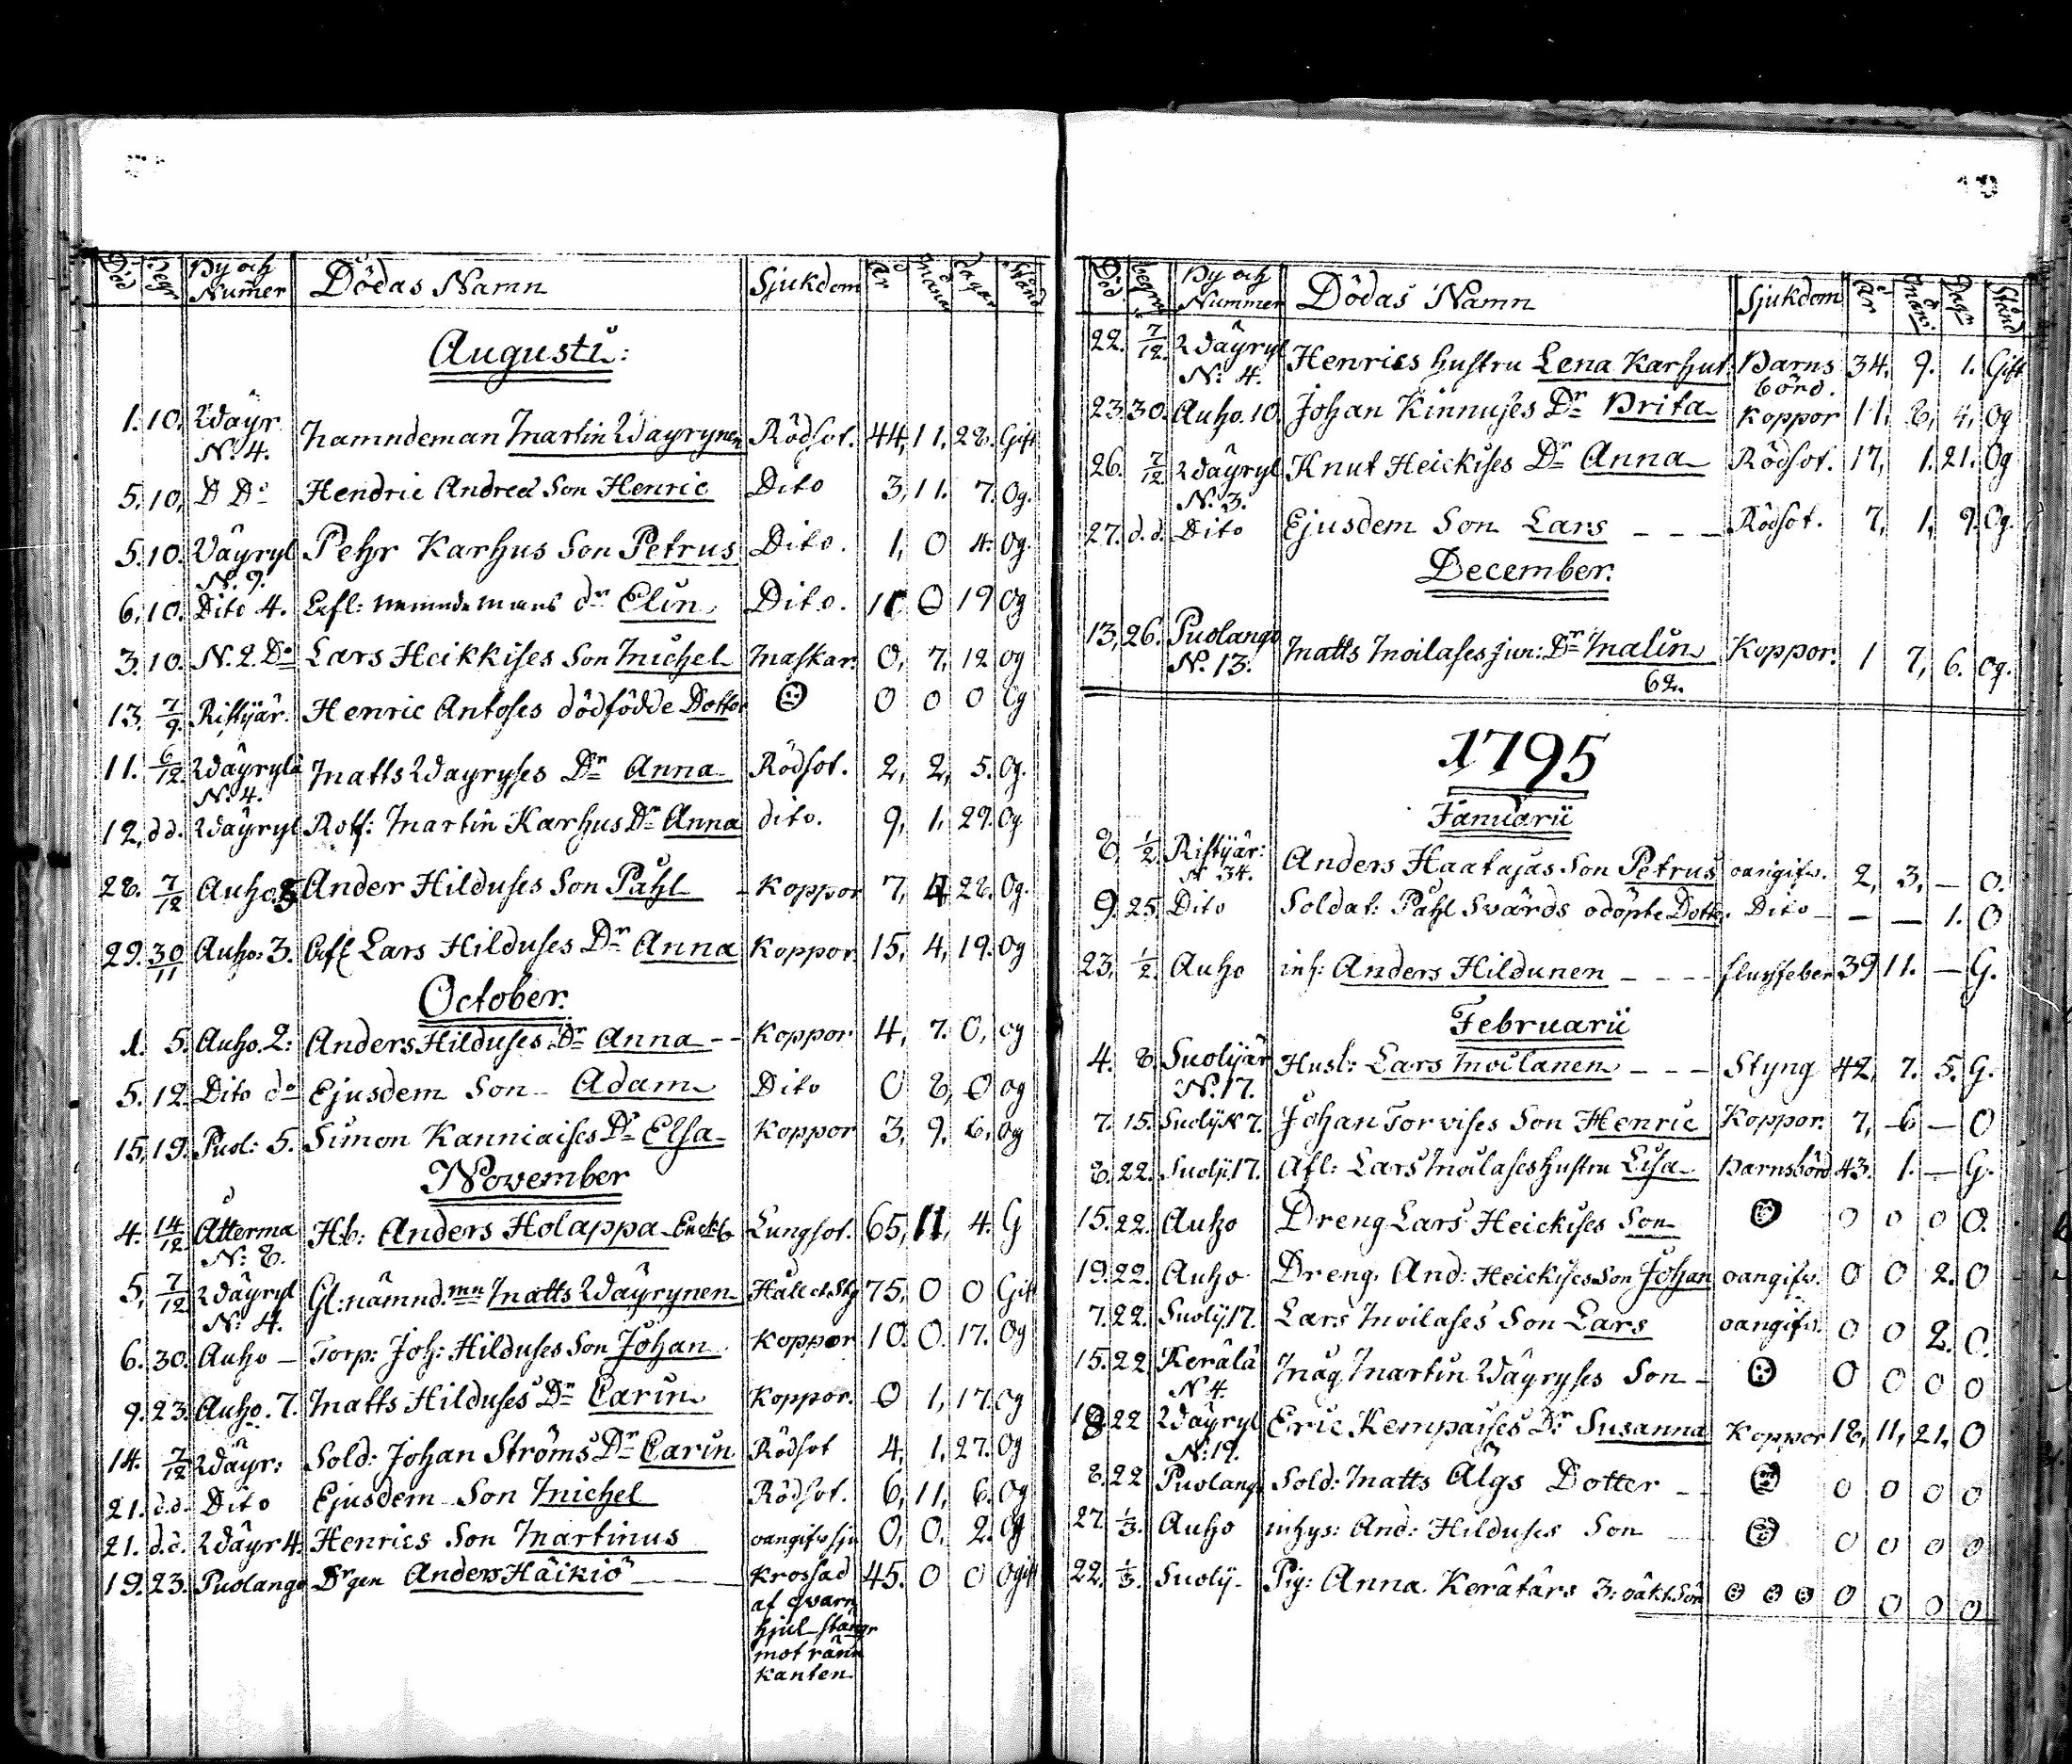 Död Begr By och Numer Dödas Namn Sjukdom År Månad Dagar Stånd
Augusti:
1. 10. Wäyr N:4. Namndeman Martin Wäyrynen Rödsot. 44, 11. 28. Gift
5. 10, D Do Hendric Andreæ Son Henric Dito 3, 11. 7. Og.
5. 10. Wäyryl N. 9. Pehr Karhus Son Petrus Dito. 1, 0 4. Og.
6. 10. Dito 4. Aefl: nemndemans dr Elin Dito. 11 0 19 Og
3. 10. N. 2. Do Lars Heikkises Son Michel Maskar. 0, 7, 12 og
13. 7/9. Ristijär. Henric Antoses dödfödde Dotter 0 0 0 Og
11. 6/12. Wäyrylä N. 4. Matts Wäyryses Dr Anna Rödsot. 2, 2, 5. Og.
12, dd. Wäyryl Rotf: Martin Karhus Dr Anna dito. 9, 1, 29. Og
28. 7/12 Auho. 3 Ander Hilduses Son Påhl - Koppor 7, 4 28. Og.
29. 30/11 Auho: 3. Aefl Lars Hilduses Dr Anna Koppor. 15, 4, 19. Og
October.
1. 5. Auho. 2: Anders Hilduses Dr Anna - - Koppor 4, 7. 0, og
5. 12. Dito do Ejusdem Son Adam Dito 0 8, 0 og
15, 19. Puol: 5. Simon Kanniaises Dr Elsa Koppor 3, 9. 6. og
November
4. 14/12. Atterma N: 8. Hb: Anders Holappa Enckl Lungsot. 65, 11, 4. G
5, 7/12 Wäyryl N: 4. Gl: nämnd.mn Matts Wäyrynen Håll et Stg 75, 0 0 Gift
6. 30. Auho - Torp: Joh: Hilduses Son Johan Koppor 10. 0. 17. Og
9. 23. Auho. 7. Matts Hilduses Dr Carin Koppor. 0 1, 17. og
14. 7/12 Wäyr: Sold: Johan Ströms Dr Carin Rödsot 4, 1, 27. Og
21. d.d. Dito Ejusdem Son Michel Rödsot. 6, 11, 6. Og
21. d.d. Wäyr 4. Henrics Son Martinus oangifv sju 0, 0, 2. Og
19. 23. Puolango Drgen Anders Häikiö Krossad 45. 0 0 Ogift
af qvarn
hjul stångr
mot ränn
kanten
Död begr. By och Nummer Dödas Namn Sjukdom År Mån. Dagr Stånd
22. 7/12. Wäyryl N: 4. Henrics hustru Lena Karhut. Barns börd. 34, 9. 1. Gift
23. 30. Auho. 10. Johan Kinnujes Dr Brita Koppor 11, 8, 4, Og
26. 7/12 Wäyryl N. 3. Knut Heickises Dr Anna Rödsot. 17, 1. 21. Og
27. d.d. Dito Ejusdem Son Lars - - - Rödsot. 7, 1, 9. Og.
December.
13, 26. Puolango N. 13. Matts Moilases jun: Dr Malin Koppor. 1 7, 6. Og.
62.
1795
Januarii
8, 1/2 Ristijär: N 34. Anders Haatajas Son Petrus oangifv. 2, 3, — O.
9. 25. Dito Soldat: Påhl Svärds odöpte Dotter. Dito — — — 1. O
23, 1/2. Auho inh: Anders Hildunen - - - - slussfeber 39 11. — G.
Februarii
4. 8. Suolijär N. 17. Husb: Lars Moilanen - - - Styng 42, 7. 5. G.
7. 15. Suolij N 7. Johan Torvises Son Henric Koppor. 7, 6 — O
8. 22. Suolij. 17. Afl: Lars Moilases hustru Lisa Barnsbörd 43. 1. — G.
15. 22. Auho Dreng Lars Heickises Son 0 0 0 O.
19. 22. Auho Dreng. And: Heickises Son Johan oangifv. 0 0 2. O
7. 22. Suolij 17. Lars Moilases Son Lars oangifv. 0 0 2. O.
15. 22 Kerälä N 4. Måg Martin Wäyryses Son 0 0 0 0
18 22 Wäyryl N: 19. Eric Kempaises Dr Susanna Koppor 18, 11, 21, O
8. 22 Puolang Sold: Matts Älgs Dotter 0 0 0 0
27. 1/3. Auho inhys: And: Hilduses Son 0 0 0 0
22. 1/3. Suolij Pig: Anna Kerätärs 3: oäkt. Sön 0 0 0 0